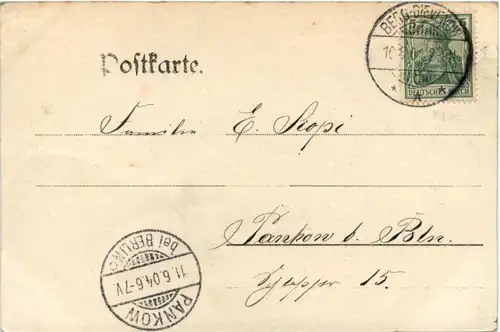 BERG-DIEVENOW
DEUTSCHES REICH
Postkarte.
Familie E. Kopi
Pankow b. Bln.
15.
PANKOW
bei BERLIN
11.6.04.6-7V.